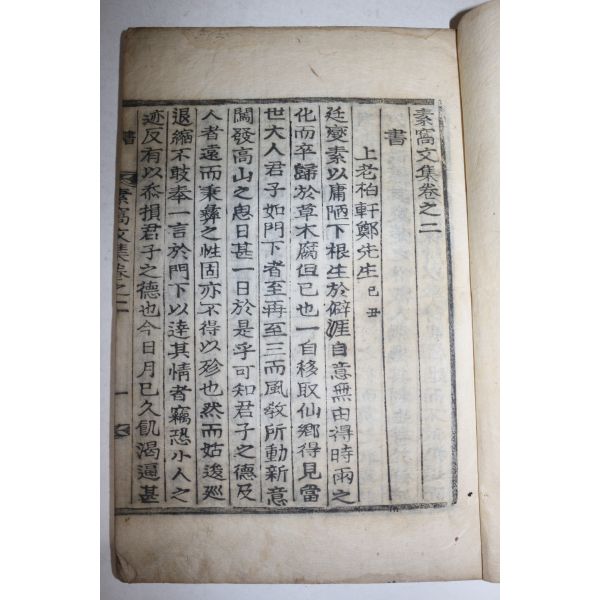 素窩文集卷之二
書
上老柏軒鄭先生 己丑
廷燮素以庸陋下根生於僻涯自意無由得時雨之
化而卒歸於草木腐但已也一自移取仙鄉得見當
世大人君子如門下者至再至三而風敎所動新意
闖發高山之思日甚一日於是乎可知君子之德及
人者遠而秉彝之性固亦不得以殄也然而姑逡巡
退縮不敢奉一言於門下以達其情者竊恐小人之
迹反有以忝損君子之德也今日月已久飢渴逼甚
書 素窩文集卷之二 一